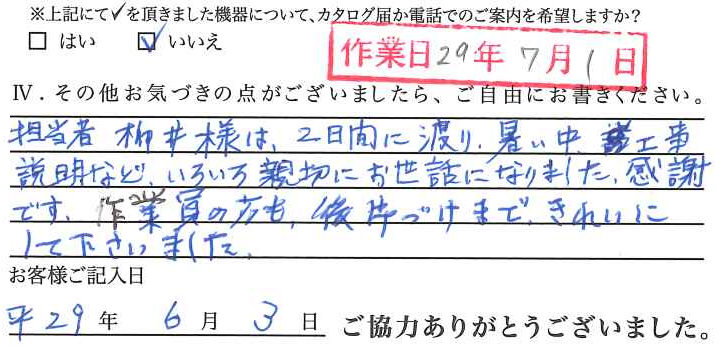 ※上記にて✓を頂きました機器について、カタログ届か電話でのご案内を希望しますか？
☐ はい ☑ いいえ
作業日 29年 7月 1日
Ⅳ．その他お気づきの点がございましたら、ご自由にお書きください。
担当者 柳井様は、2日間に渡り、暑い中、工事
説明など、いろいろ親切にお世話になりました。感謝
です。作業員の方も、後片づけまで、きれいに
して下さいました。
お客様ご記入日
平29年 6月 3日 ご協力ありがとうございました。